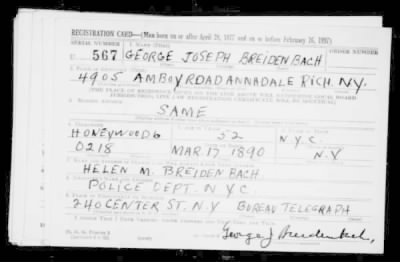 REGISTRATION CARD—(Men born on or after April 28, 1877 and on or before February 16, 1897)
SERIAL NUMBER 1. NAME (Print) ORDER NUMBER
U 567 GEORGE JOSEPH BREIDENBACH
4905 AMBOY ROAD ANNADALE RICH. N.Y.
(THE PLACE OF RESIDENCE GIVEN ON THE LINE ABOVE WILL DETERMINE LOCAL BOARD
JURISDICTION; LINE 2 OF REGISTRATION CERTIFICATE WILL BE IDENTICAL)
SAME
HONEYWOOD 6 52 N.Y.C.
0218 MAR 17 1890 N.Y
HELEN M. BREIDENBACH
POLICE DEPT. N.Y.C.
240 CENTER ST. N.Y BUREAU TELEGRAPH
George J Breidenbach